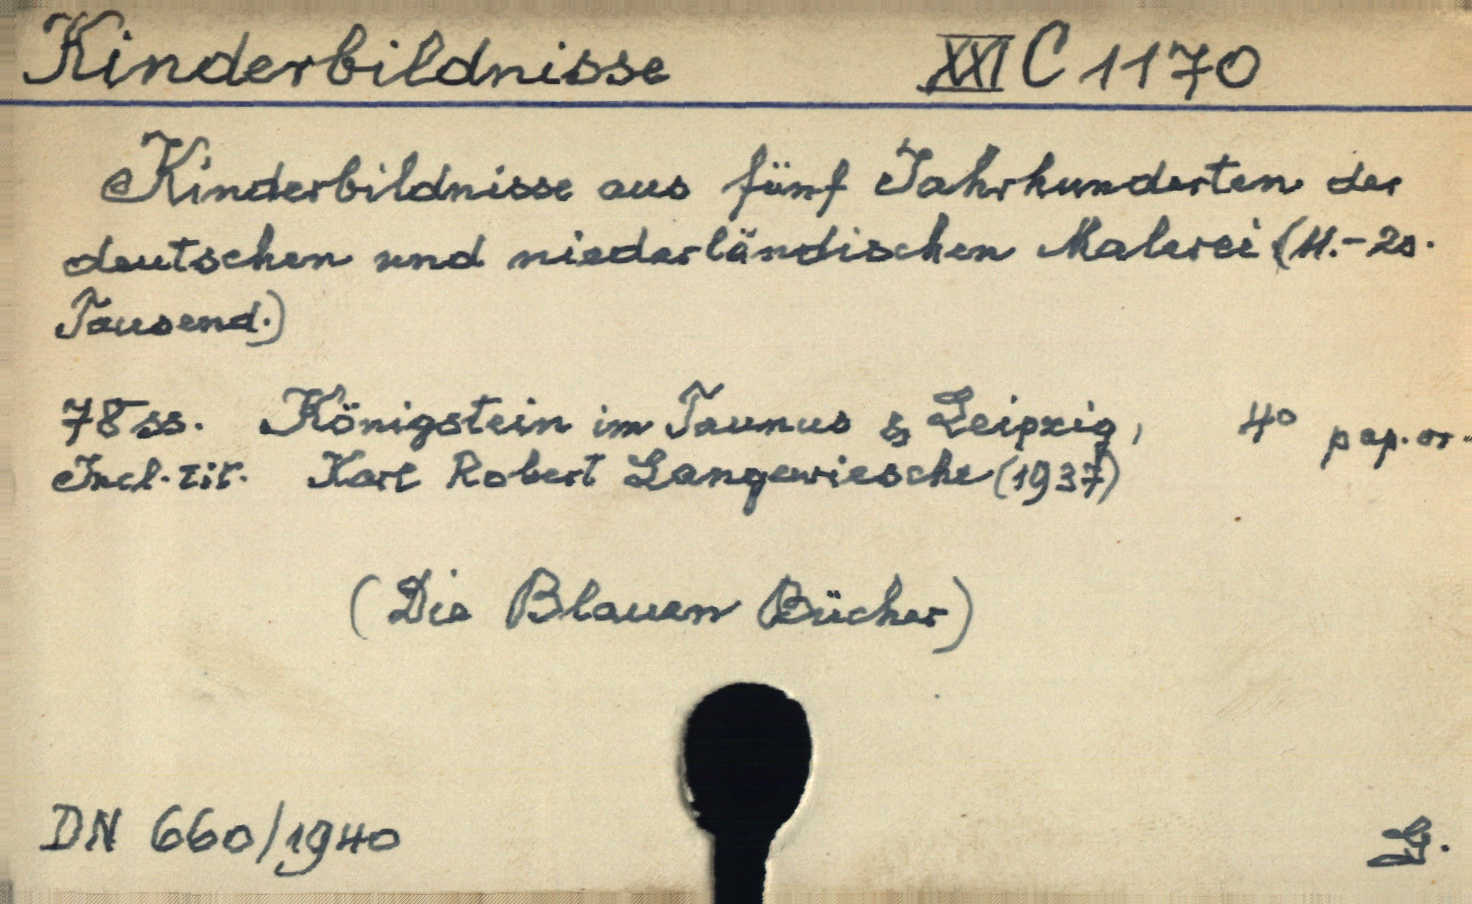 Kinderbildnisse XXI C 1170
Kinderbildnisse aus fünf Jahrhunderten der
deutschen und niederländischen Malerei (11.-20.
Tausend.)
78 ss. Königstein im Taunus & Leipzig, 4° pap. or.
Incl. tit. Karl Robert Langewiesche (1937)
(Die Blauen Bücher)
DN 660/1940 G.